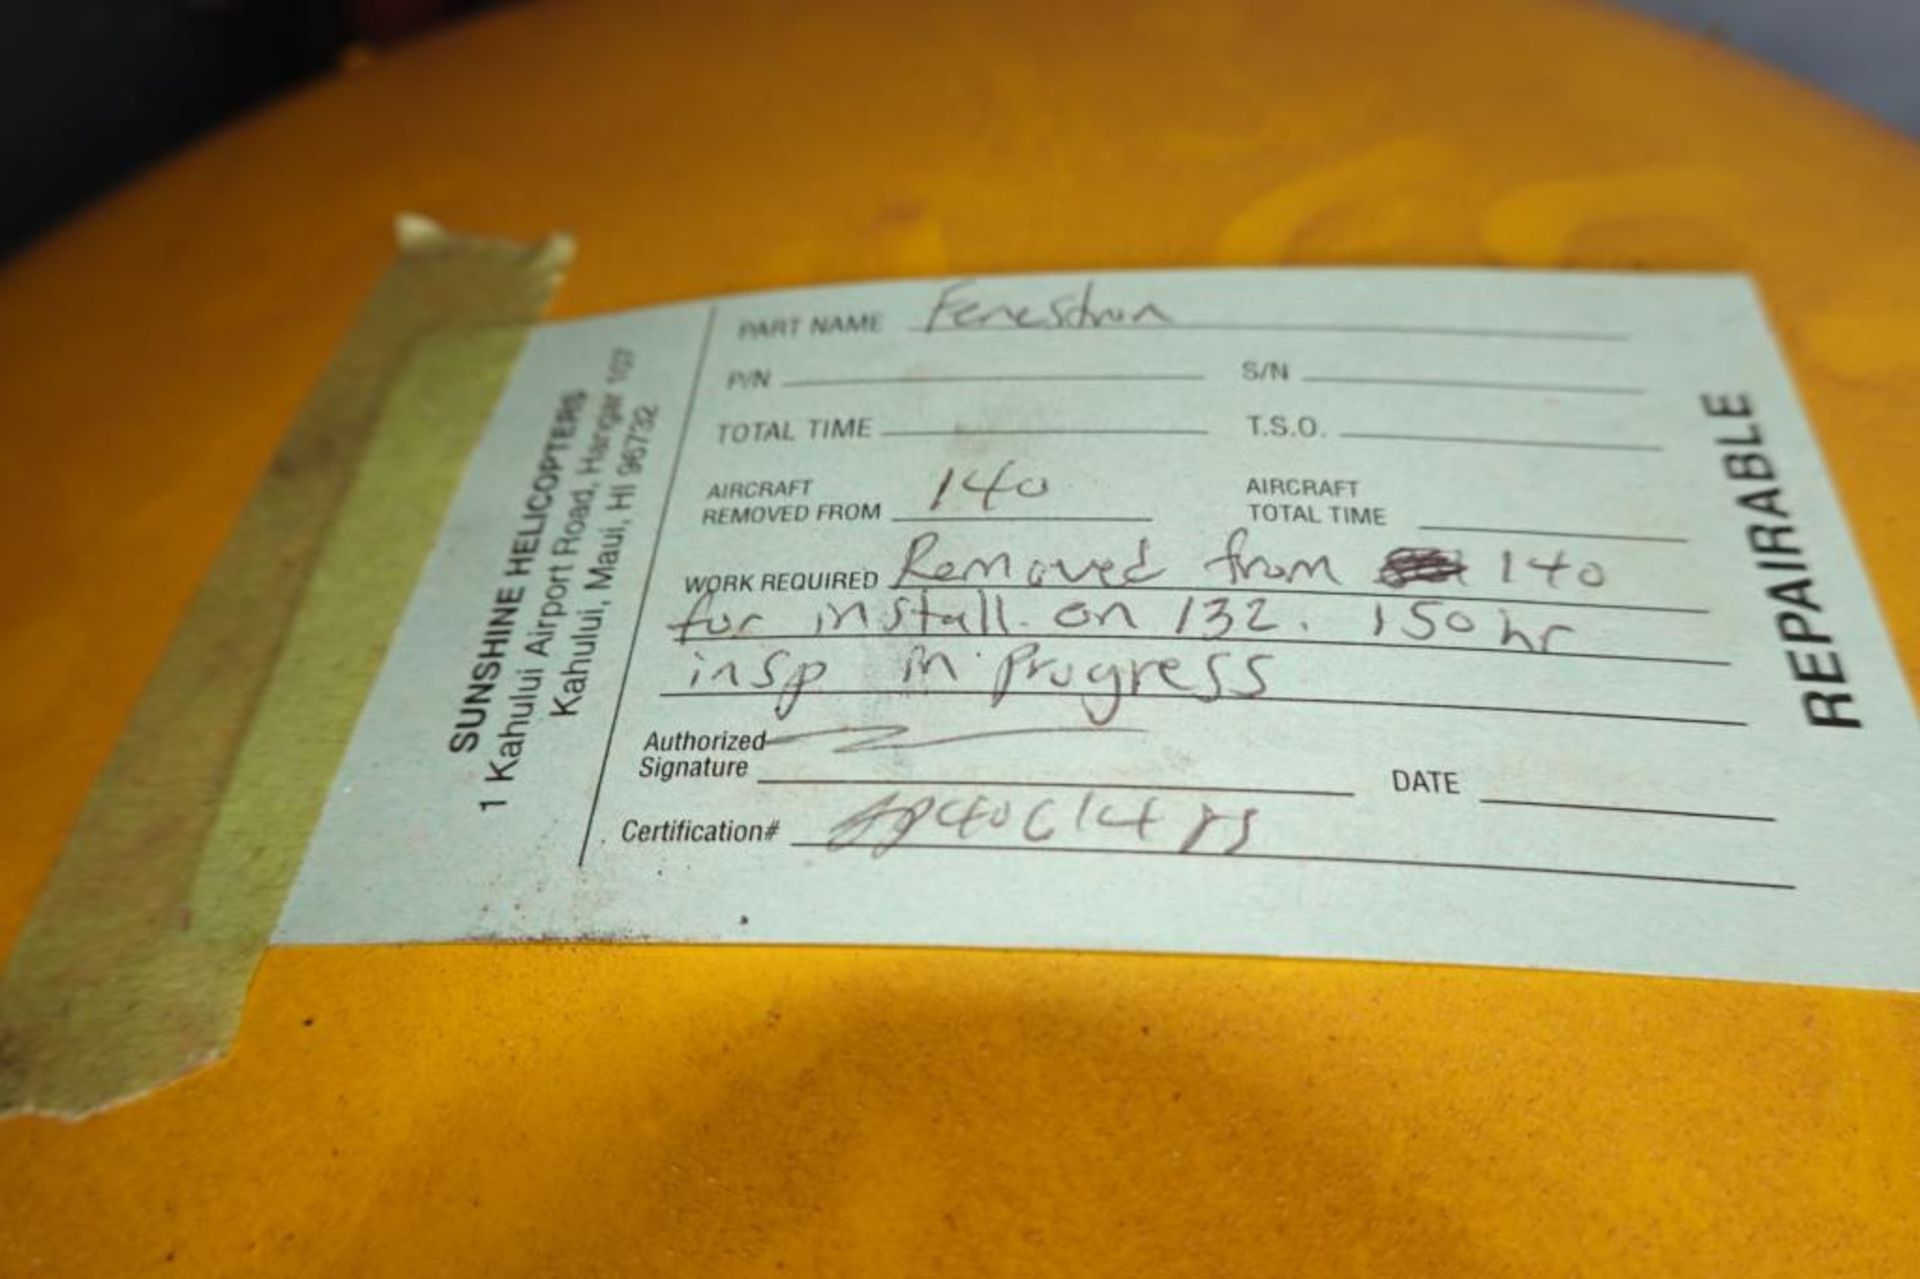 SUNSHINE HELICOPTERS
1 Kahului Airport Road, Hangar 107
Kahului, Maui, HI 96732
PART NAME Fenestron
P/N S/N
TOTAL TIME T.S.O.
AIRCRAFT REMOVED FROM 140 AIRCRAFT TOTAL TIME
WORK REQUIRED Removed from 140
for install on 132. 150 hr
insp in Progress
Authorized
Signature DATE
Certification#
REPAIRABLE